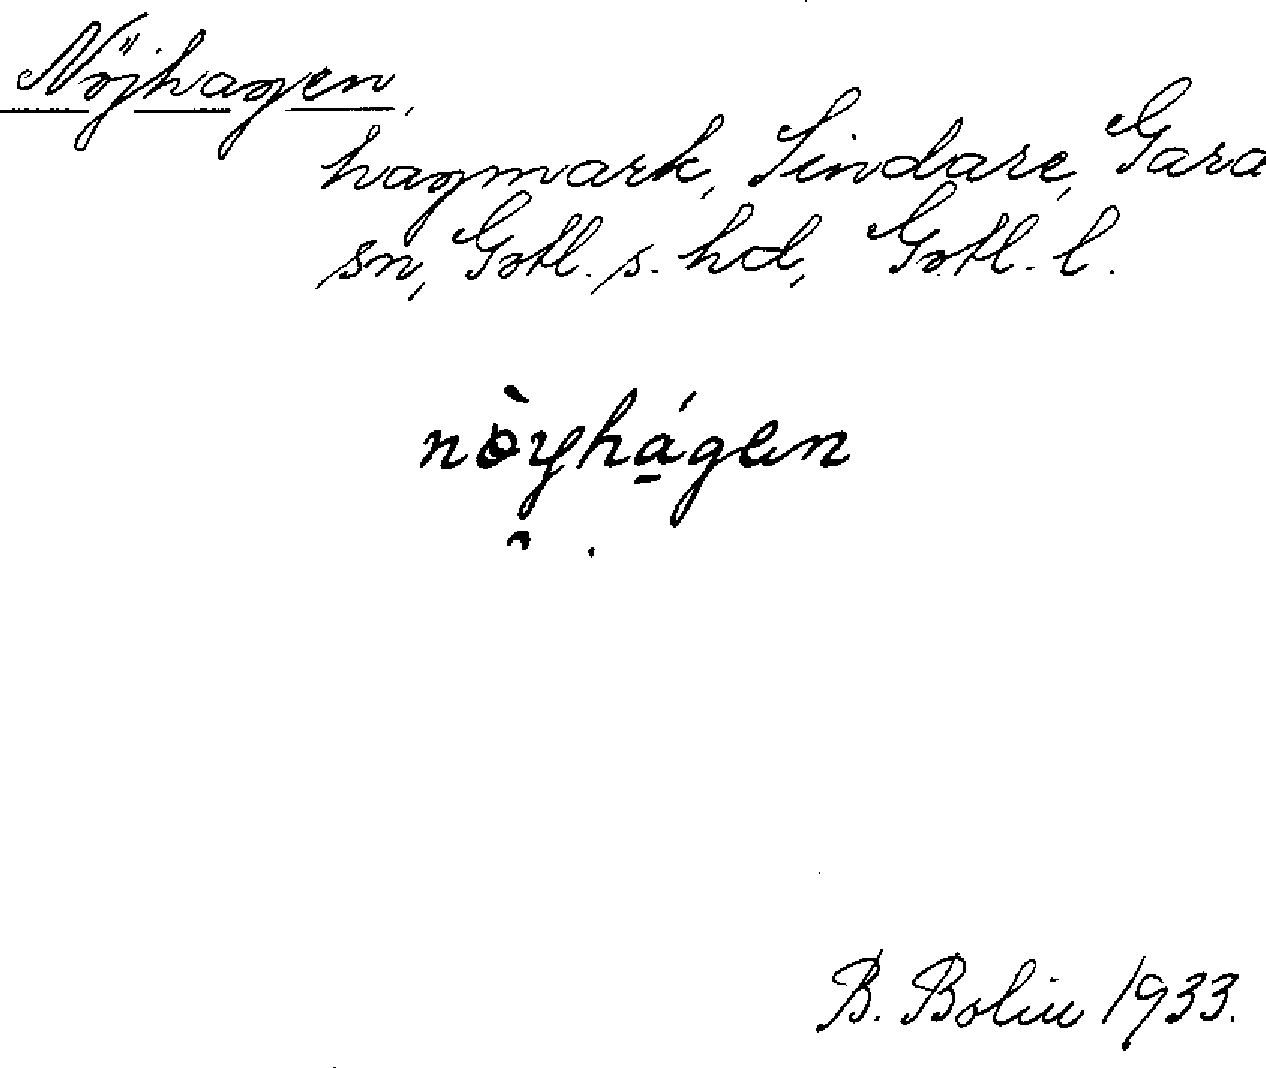 Nöjhagen,
hagmark, Sindare, Gara
sn, Gotl. s. hd, Gotl. l.
nòyhágen
B. Bolin 1933.